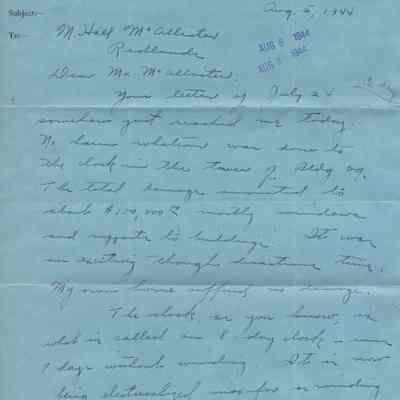 Subject:-
Aug. 5, 1944
To:-
M. Hall McAllister
Redlands
AUG 8 1944
AUG 8 1944
Dear Mr. McAllister:
Your letter of July 24
somehow just reached me today.
No harm whatever was done to
the clock in the tower of Bldg
The total damage amounted to
about $150,000.00 mostly windows
and supports to buildings. It was
an exciting though disastrous time.
My own home suffered no damage.
The clock, as you know, is
what is called an 8 day clock - runs
7 days without winding. It is now
being electricalized as far as winding